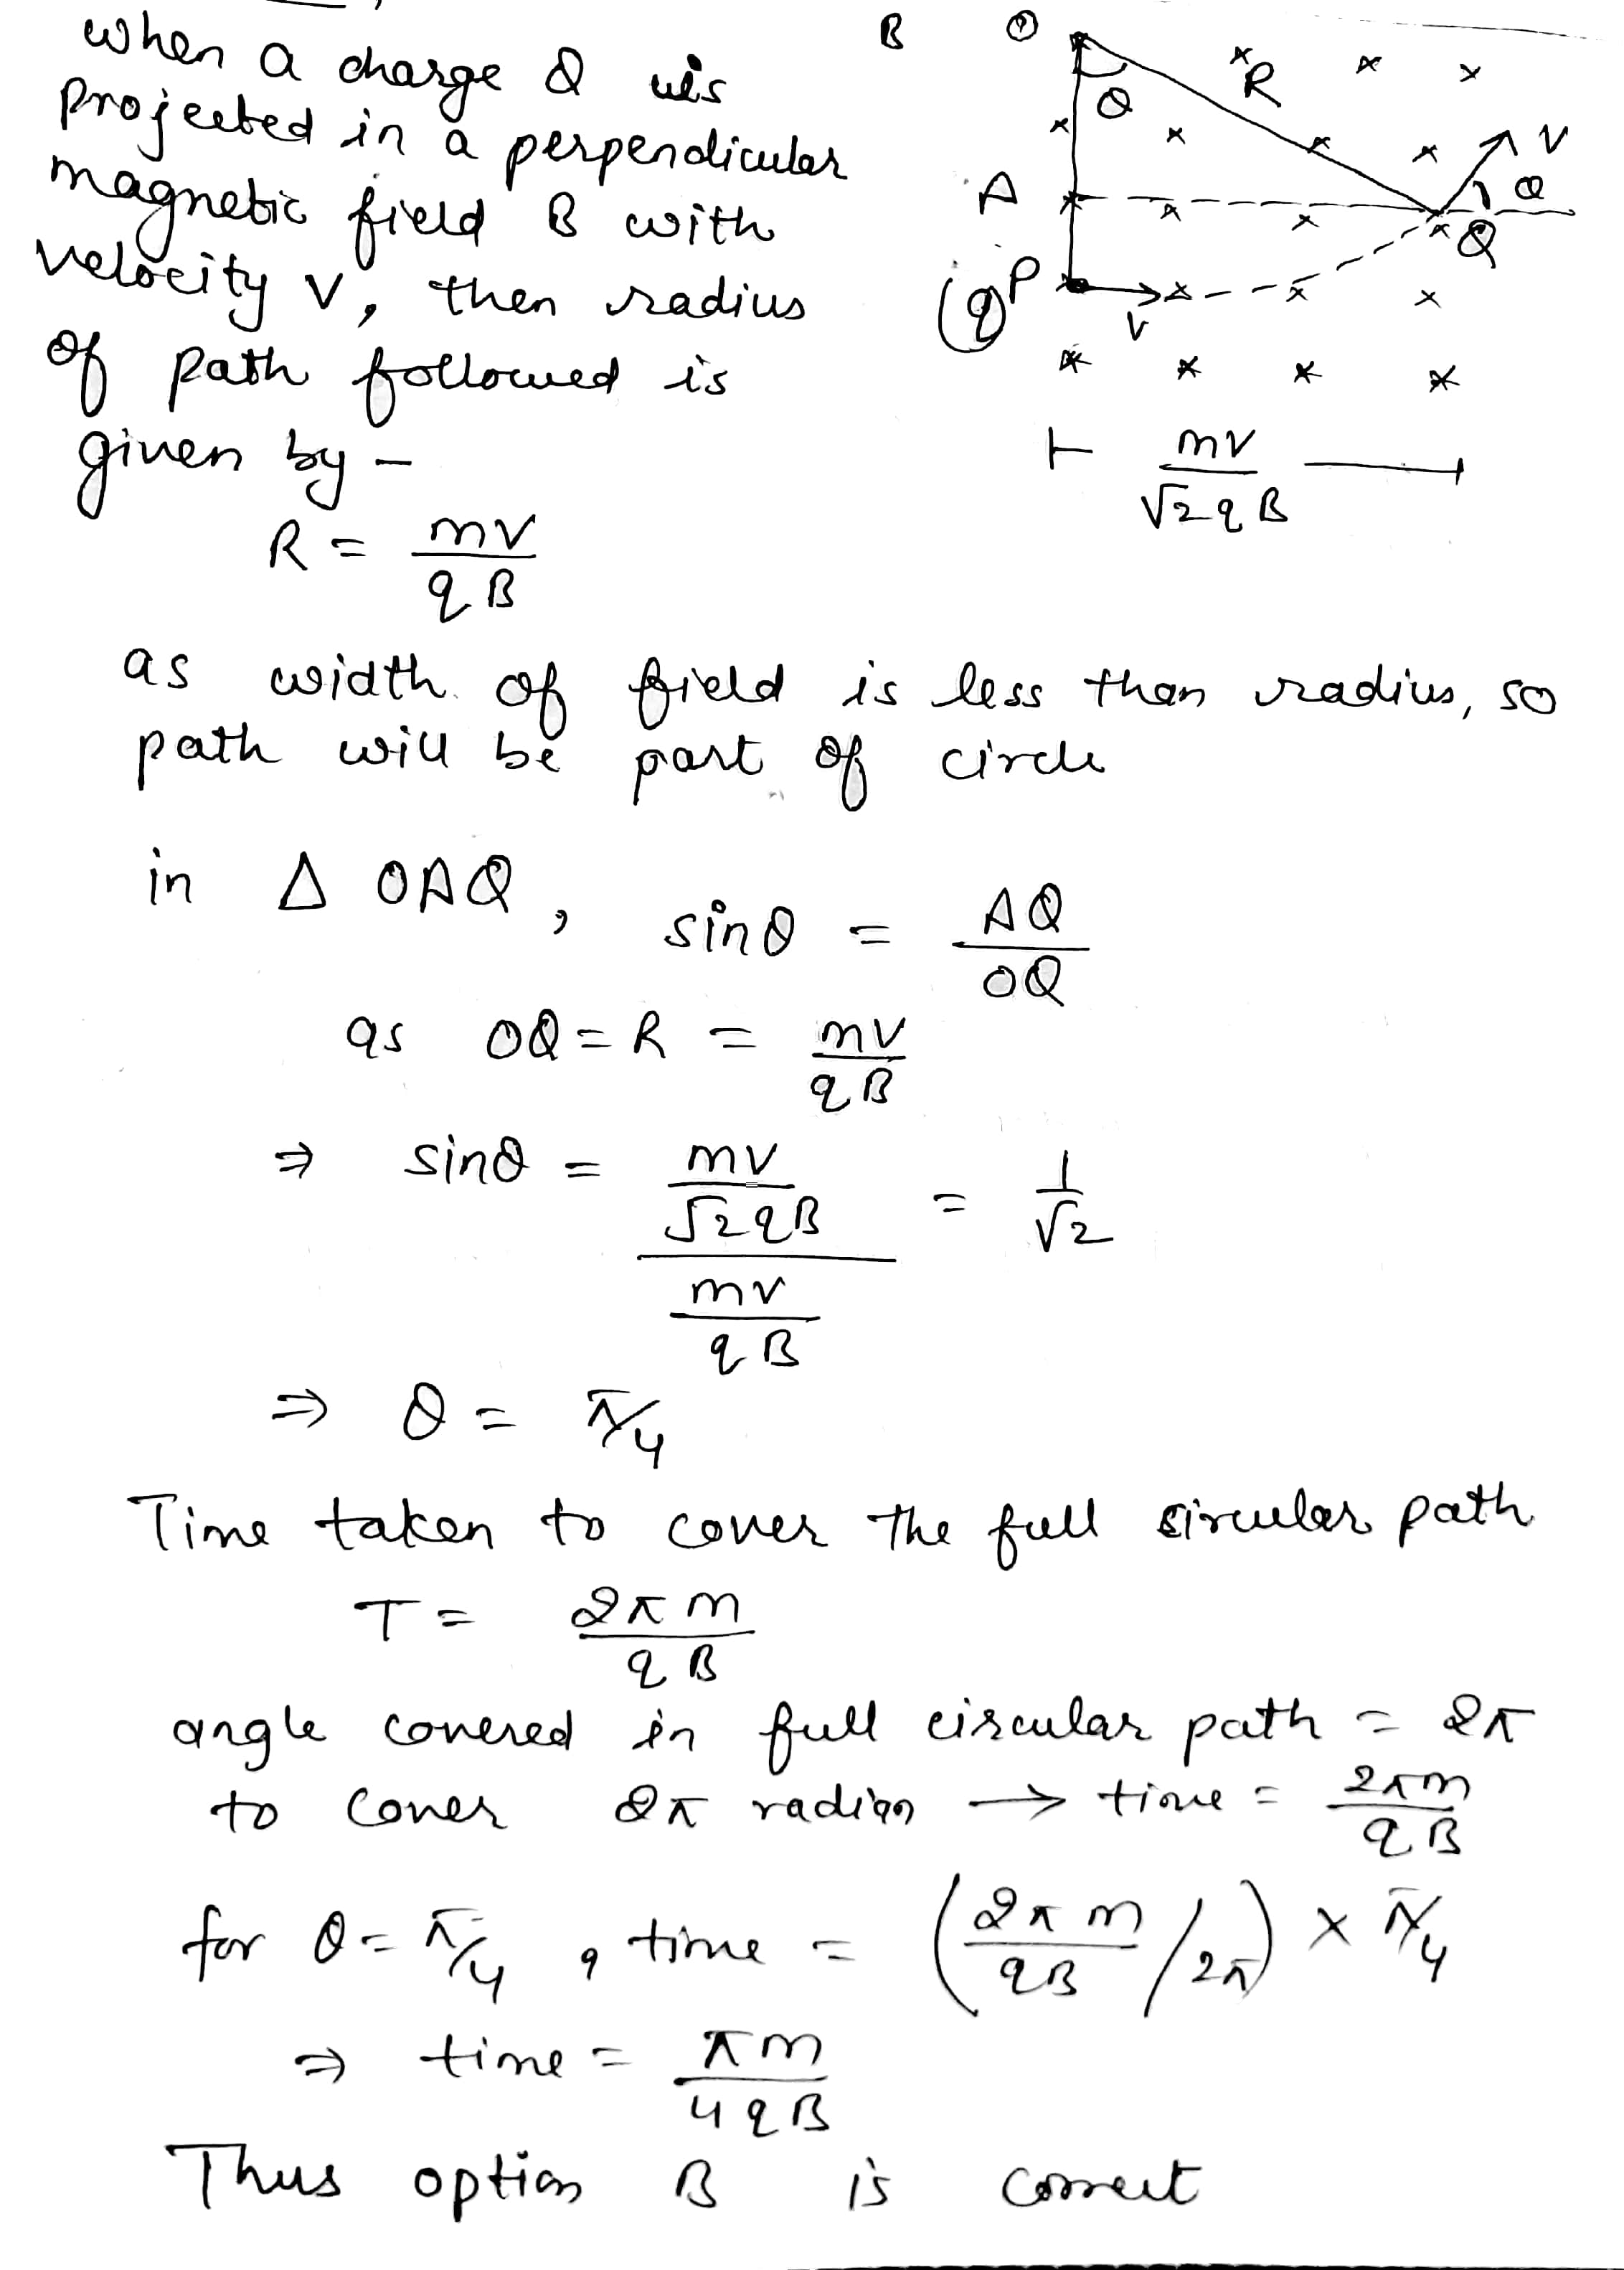 when a charge Q is
projected in a perpendicular
magnetic field B with
velocity v, then radius
of path followed is
given by -
R = mv / qB
B O R θ v
A θ Q
(q) P v
mv / √2 qB
as width of field is less than radius, so
path will be part of circle
in Δ OAQ, sinθ = AQ / OQ
as OQ = R = mv / qB
⇒ sinθ = (mv / √2 qB) / (mv / qB) = 1 / √2
⇒ θ = π/4
Time taken to cover the full circular path
T = 2πm / qB
angle covered in full circular path = 2π
to cover 2π radian → time = 2πm / qB
for θ = π/4, time = (2πm / qB / 2π) × π/4
⇒ time = πm / 4qB
Thus option B is correct